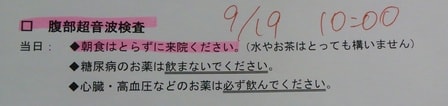 □ 腹部超音波検査 9/19 10:00
当日： ◆朝食はとらずに来院ください。（水やお茶はとっても構いません）
◆糖尿病のお薬は飲まないでください。
◆心臓・高血圧などのお薬は必ず飲んでください。